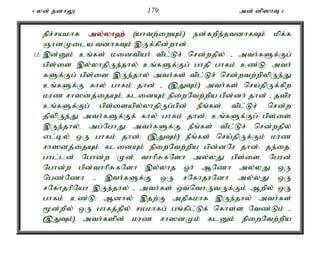 4 லன் தனாலூ 179 அன் னிஸாவு 4
நிச்சயமாக அல்லாஹ் (யாவற்றையும்) நன்கறிந்தவனாகவும் மிக்க
ஞானமுடைய வனாகவும் இருக்கின்றான்.
12. இன்னும் உங்கள் மனைவியர் விட்டுச் சென்றதில் - அவர்களுக்குப்
பிள்ளை இல்லாதிருந்தால் உங்களுக்குப் பாதி பாகம் உண்டு; அவர்
களுக்குப் பிள்ளை இருந்தால் அவர்கள் விட்டுச் சென்றவற்றிலிருந்து
உங்களுக்கு கால் பாகம் தான் - (இதுவும்) அவர்கள் செய்திருக்கிற
மரண சாஸனத்தையும், கடனையும் நிறைவேற்றிய பின்னர் தான் - தவிர
உங்களுக்குப் பிள்ளையில்லாதிருப்பின் நீங்கள் விட்டுச் சென்ற
திலிருந்து அவர்களுக்குக் கால் பாகம் தான்; உங்களுக்குப் பிள்ளை
இருந்தால், அப்போது அவர்களுக்கு நீங்கள் விட்டுச் சென்றதில்
எட்டில் ஒரு பாகம் தான்; (இதுவும்) நீங்கள் செய்திருக்கும் மரண
சாஸனத்தையும் கடனையும் நிறைவேற்றிய பின்னரே தான்; தந்தை,
பாட்டன் போன்ற முன் வாரிசுகளோ அல்லது பிள்ளை, பேரன்
போன்ற பின்வாரிசுகளோ இல்லாத ஓர் ஆணோ அல்லது ஒரு
பெண்ணோ - இவர்களுக்கு ஒரு சகோதரனோ அல்லது ஒரு
சகோதரியோ இருந்தால் - அவர்கள் ஒவ்வொருவருக்கும் ஆறில் ஒரு
பாகம் உண்டு; ஆனால் இதற்கு அதிகமாக இருந்தால் அவர்கள்
மூன்றில் ஒரு பாகத்தில் சமமாகப் பங்கிட்டுக் கொள்ள வேண்டும் -
(இதுவும்) அவர்களின் மரண சாஸனமும் கடனும் நிறைவேற்றிய